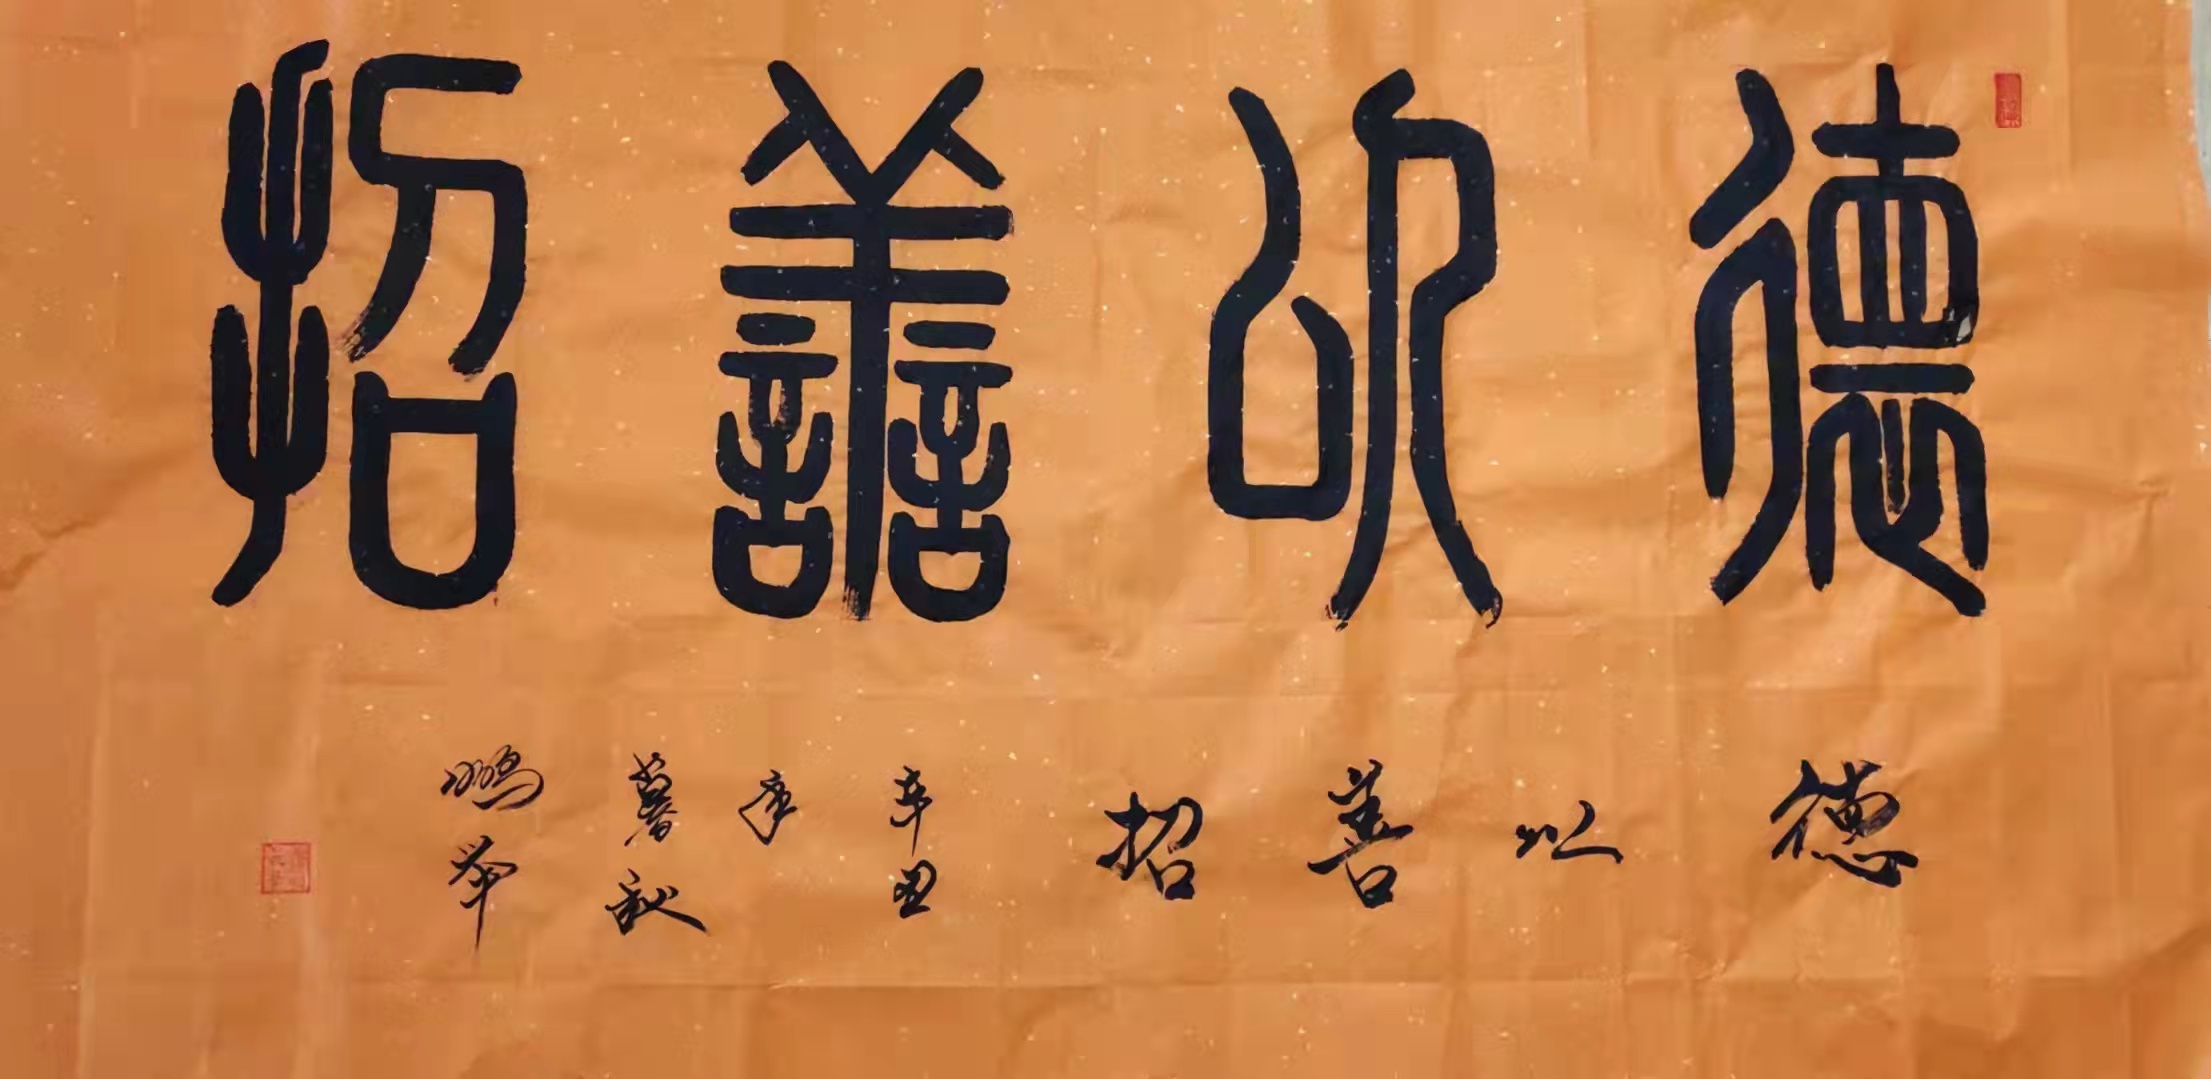 德以善招
德以善招
辛丑
年
暮秋
鹏举